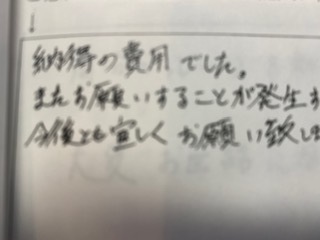 納得の費用でした。
またお願いすることが発生
今後とも宜しくお願い致し